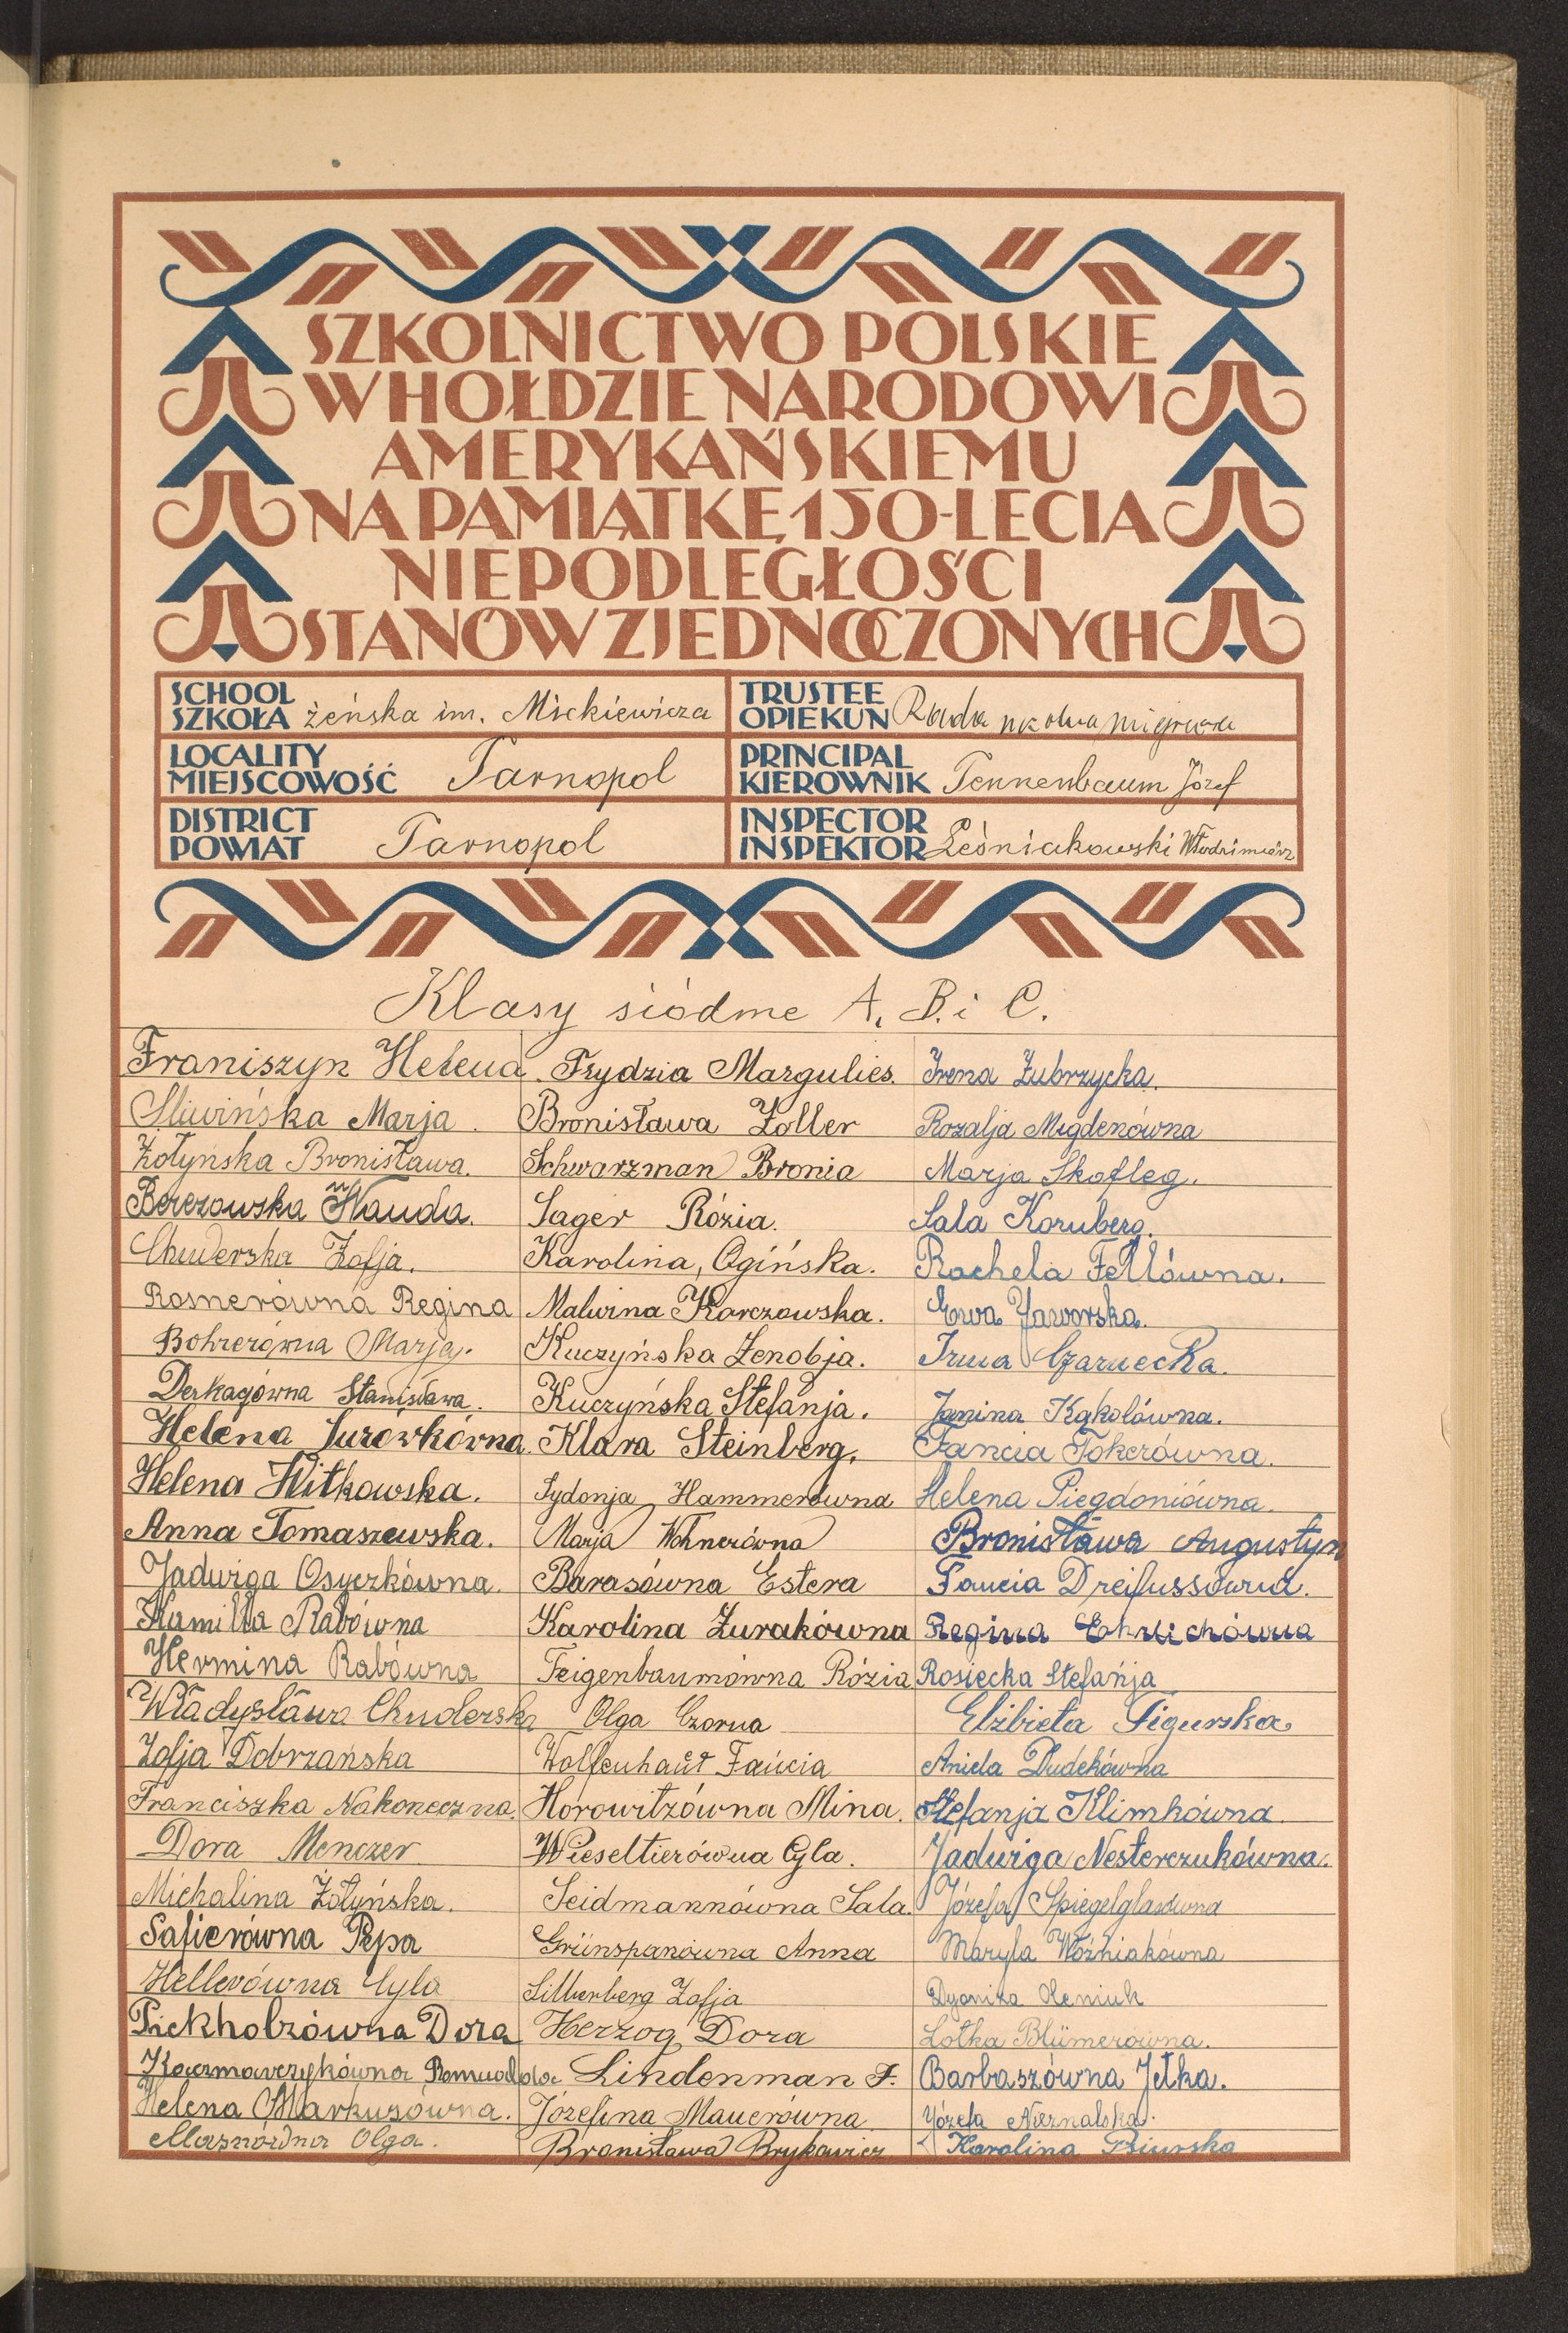 SZKOLNICTWO POLSKIE
W HOŁDZIE NARODOWI
AMERYKAŃSKIEMU
NA PAMIĄTKĘ 150-LECIA
NIEPODLEGŁOŚCI
STANÓW ZJEDNOCZONYCH
SCHOOL
SZKOŁA żeńska im. Mickiewicza
TRUSTEE
OPIEKUN Rada
LOCALITY
MIEJSCOWOŚĆ Tarnopol
PRINCIPAL
KIEROWNIK Tennenbaum Józef
DISTRICT
POWIAT Tarnopol
INSPECTOR
INSPEKTOR Leśniakowski Włodzimierz
Klasy siódme A, B. i C.
Franiszyn Helena
Śliwińska Marja
Żołyńska Bronisława.
Berezowska Wanda.
Chuderska Zofja.
Rosnerówna Regina
Bohrerówna Marja.
Stanisława.
Helena Jurówkówna.
Helena Witkowska.
Anna Tomaszewska.
Jadwiga Osyczkówna.
Kamilla Rabówna
Hermina Rabówna
Władysława Chuderska
Zofja Dobrzańska
Franciszka Nakoneczna.
Dora Menczer
Michalina Żołyńska.
Safierówna Pepa
Hellerówna Cyla
Pickholzówna Dora
Kaczmarczykówna Romualda
Helena Markusówna.
Olga.
Frydzia Margulies.
Bronisława Zoller
Schwarzman Bronia
Sager Rózia.
Karolina, Ogińska.
Malwina Karczowska.
Kuczyńska Zenobja.
Kuczyńska Stefanja.
Klara Steinberg.
Sydonja Hammerówna
Marja Wohnerówna
Barasówna Estera
Karolina Żurakówna
Feigenbaumówna Rózia
Olga Czorna
Wolfenhaut Fańcia
Horowitzówna Mina.
Wieseltierówna Cyla.
Seidmannówna Sala.
Grünspanówna Anna
Silberberg Zofja
Herzog Dora
Lindenman F.
Józefina Mauerówna
Bronisława Brykowicz
Irena Zubrzycka.
Rozalja Migdenówna
Marja Skofleg.
Sala Kornberg.
Rachela Fellówna.
Ewa Jaworska.
Irena Czarnecka.
Janina Kąkolówna.
Fancia Tokerówna.
Helena Piegdoniówna.
Bronisława Augustyn
Fancia Dreifussówna.
Regina Ehrlichówna
Rosiecka Stefańja
Elżbieta Figurska
Aniela Dudekówna
Stefanja Klimkówna
Jadwiga Nesterczukówna.
Józefa Spiegelglasówna
Maryla Woźniakówna
Dyoniza Oleniuk
Lotka Blümerówna.
Barbaszówna Jetka.
Józefa Nieznalska.
Karolina Psiurska